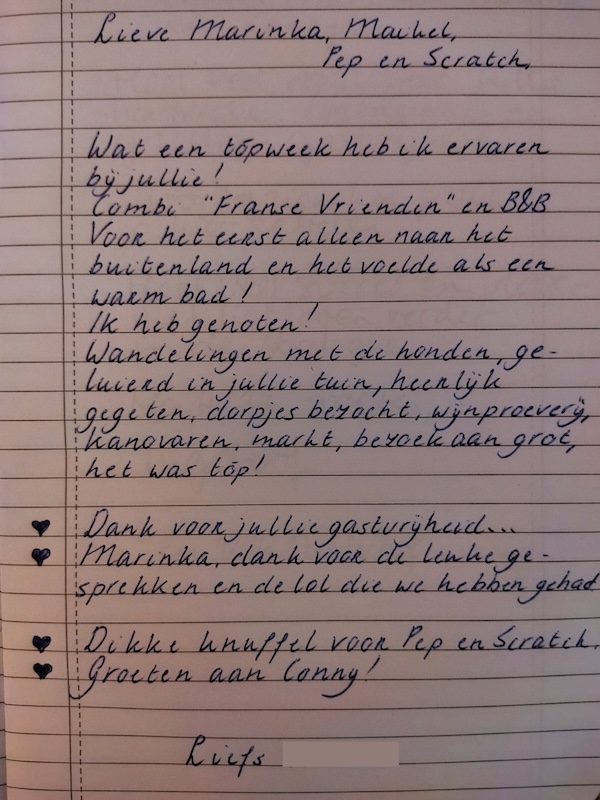 Lieve Marinka, Maikel,
Pep en Scratch,
Wat een tópweek heb ik ervaren
bij jullie!
Combi "Franse Vrienden" en B&B
Voor het eerst alleen naar het
buitenland en het voelde als een
warm bad!
Ik heb genoten!
Wandelingen met de honden, ge-
luierd in jullie tuin, heerlijk
gegeten, dorpjes bezocht, wijnproeverij,
kanovaren, markt, bezoek aan grot,
het was tóp!
♥ Dank voor jullie gastvrijheid...
♥ Marinka, dank voor de leuke ge-
sprekken en de lol die we hebben gehad
♥ Dikke knuffel voor Pep en Scratch.
♥ Groeten aan Conny!
Liefs